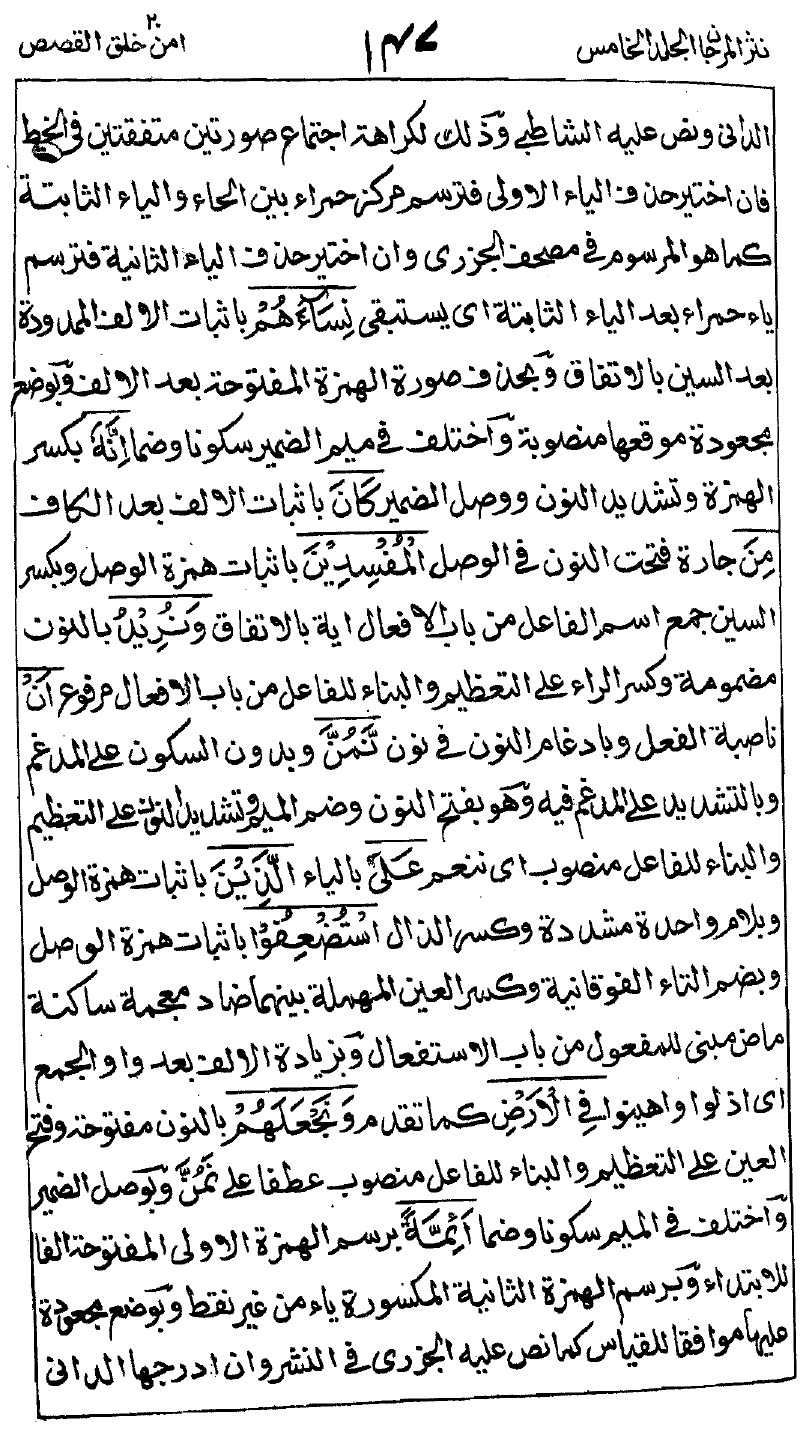 نثر المرجان الجلد الخامس ١٤٧ امن خلق ٢٠ القصص
الدانى ونص عليه الشاطبى وذلك لكراهة اجتماع صورتين متفقتين فى الخط
فان اختير حذف الياء الاولى فترسم مركز حمراء بين الحاء والياء الثابتة
كما هو المرسوم فى مصحف الجزرى وان اختير حذف الياء الثانية فترسم
ياء حمراء بعد الياء الثابتة اى يستبقى نِسَآءَهُمْ باثبات الالف الممدودة
بعد السين بالاتفاق وبحذف صورة الهمزة المفتوحة بعد الالف وبوضع
مجعودة موقعها منصوبة واختلف فى ميم الضمير سكونا وضما اِنَّهٗ بكسر
الهمزة وتشديد النون ووصل الضمير كَانَ باثبات الالف بعد الكاف
مِنَ جارة فتحت النون فى الوصل الْمُفْسِدِيْنَ باثبات همزة الوصل وبكسر
السين جمع اسم الفاعل من باب الافعال اية بالاتفاق وَنُرِيْدُ بالنون
مضمومة وكسر الراء على التعظيم والبناء للفاعل من باب الافعال مرفوع اَنْ
ناصبة الفعل وبادغام النون فى نون نَّمُنَّ وبدون السكون على المدغم
وبالتشديد على المدغم فيه وهو بفتح النون وضم الميم وتشديد النون على التعظيم
والبناء للفاعل منصوب اى ننعم عَلَى بالياء الَّذِيْنَ باثبات همزة الوصل
وبلام واحدة مشددة وكسر الذال اسْتُضْعِفُوْا باثبات همزة الوصل
وبضم التاء الفوقانية وكسر العين المهملة بينهما ضاد معجمة ساكنة
ماض مبنى للمفعول من باب الاستفعال وبزيادة الالف بعد واو الجمع
اى اذلوا واهينوا فِى الْاَرْضِ كما تقدم وَنَجْعَلَهُمْ بالنون مفتوحة وفتح
العين على التعظيم والبناء للفاعل منصوب عطفا على نَمُنَّ وبوصل الضمير
واختلف فى الميم سكونا وضما اَئِمَّةً برسم الهمزة الاولى المفتوحة الفا
للابتداء وبرسم الهمزة الثانية المكسورة ياء من غير نقط وبوضع مجعودة
عليها موافقا للقياس كما نص عليه الجزرى فى النشر وان ادرجها الدانى